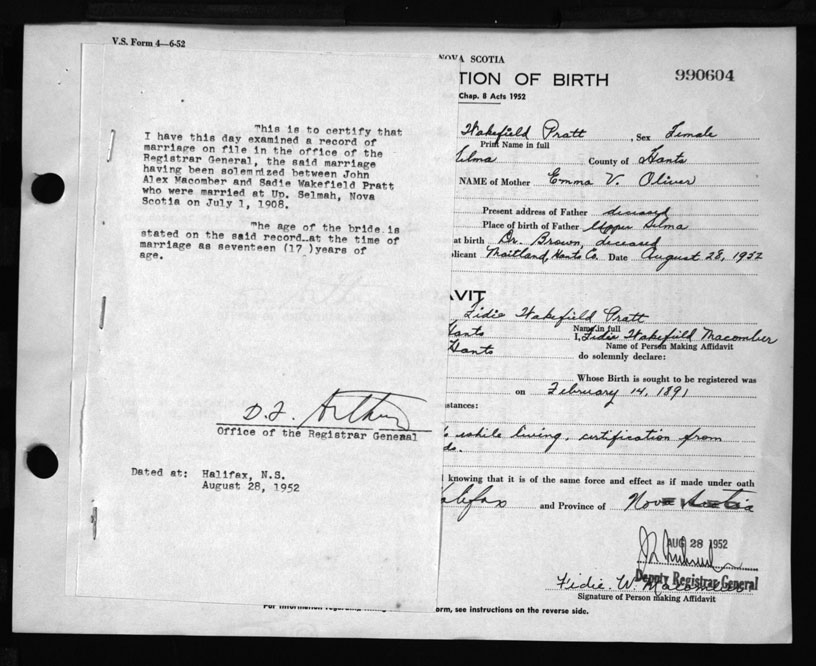 V.S. Form 4—6-52
This is to certify that
I have this day examined a record of
marriage on file in the office of the
Registrar General, the said marriage
having been solemnized between John
Alex Macomber and Sadie Wakefield Pratt
who were married at Up. Selmah, Nova
Scotia on July 1, 1908.
The age of the bride is
stated on the said record at the time of
marriage as seventeen (17 )years of
age.
D. F. Arthur
Office of the Registrar General
Dated at: Halifax, N.S.
August 28, 1952
NOVA SCOTIA
TION OF BIRTH 990604
Chap. 8 Acts 1952
Wakefield Pratt , Sex Female
Print Name in full
Selma County of Hants
NAME of Mother Emma V. Oliver
Present address of Father diseased
Place of birth of Father Upper Selma
at birth Dr. Brown, diseased
plicant Maitland, Hants Co. Date August 28, 1952
AVIT
Sidie Wakefield Pratt
Name in full
Hants I, Sidie Wakefield Macomber
Name of Person Making Affidavit
Hants do solemnly declare:
Whose Birth is sought to be registered was
on February 14, 1891
stances:
while living, certification from
knowing that it is of the same force and effect as if made under oath
Halifax and Province of Nova Scotia
AUG 28 1952
Deputy Registrar General
Sidie W. Macomber
Signature of Person making Affidavit
orm, see instructions on the reverse side.